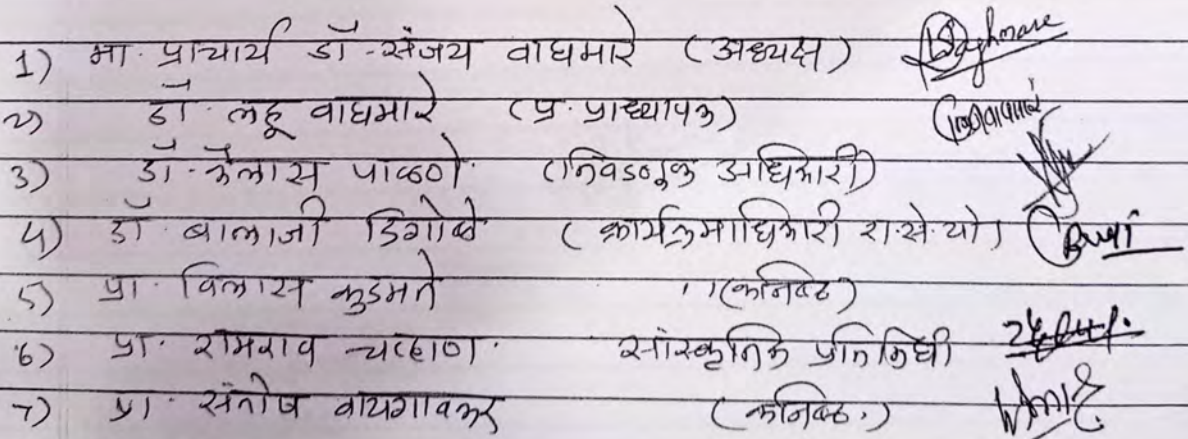 1) मा. प्राचार्य डॉ. संजय वाघमारे (अध्यक्ष) Waghmare
2) डॉ. लहू वाघमारे (प्र. प्राध्यापक)
3) डॉ. कैलास पाळणे (निवडणूक अधिकारी)
4) डॉ. बालाजी डिगोळे (कार्यक्रमाधिकारी रा.से.यो)
5) प्रा. विलास कुडमते ,, (कनिष्ठ)
6) प्रा. रामराव चव्हाण. सांस्कृतिक प्रतिनिधी
7) प्रा. संतोष वायगावकर (कनिष्ठ.)